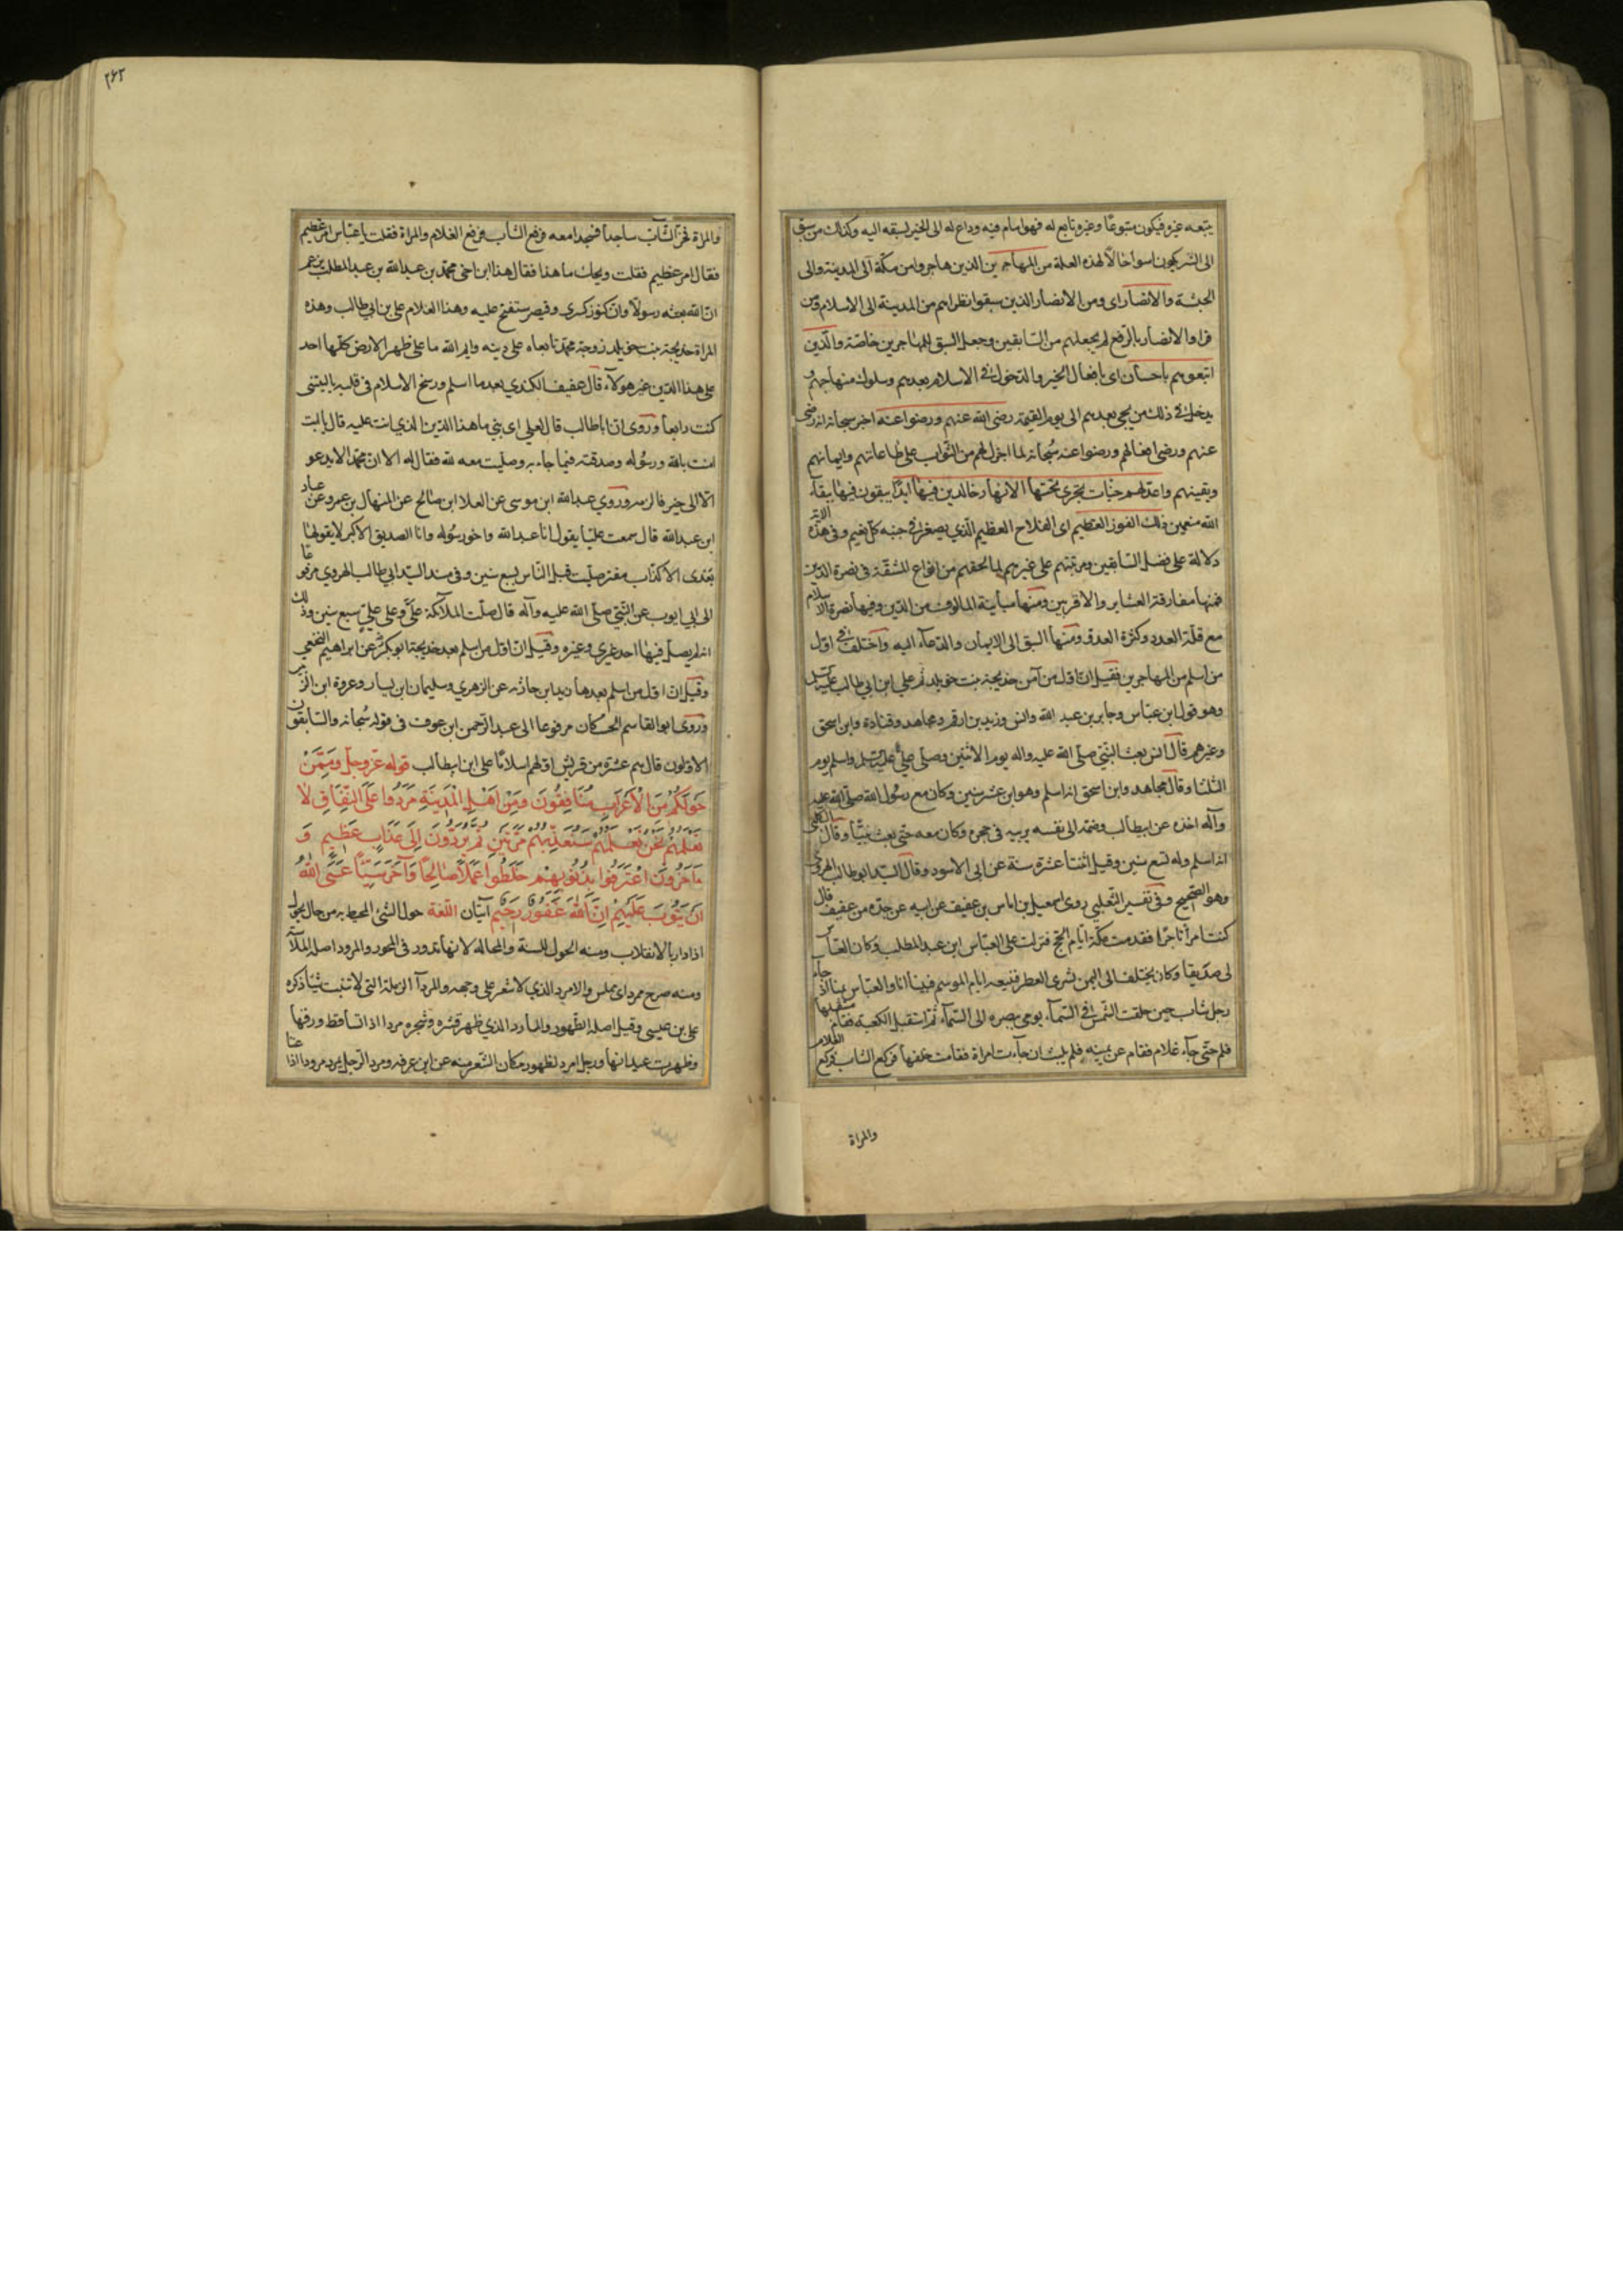 يتبعه غيره فيكون متبوعا وغيره تابع له فهو امام فيه وداع له الى الخير لسبقه اليه وكذلك من سبق
الى الشر يكون اسوأ حالا لهذه العلة من المهاجرين الذين هاجروا من مكة الى المدينة والى
الحبشة والانصار اى ومن الانصار الذين سبقوا نظراءهم من المدينة الى الاسلام ومن
قرا والانصار بالرفع لم يجعلهم من السابقين وجعل السبق للمهاجرين خاصة والذين
اتبعوهم باحسان اى بافعال الخير والدخول فى الاسلام بعدهم وسلوك منهاجهم و
يدخل فى ذلك من يجئ بعدهم الى يوم القيمة رضى الله عنهم ورضوا عنه اخبر سبحانه انه رضى
عنهم ورضى افعالهم ورضوا عنه سبحانه لما اجزل لهم من الثواب على طاعاتهم وايمانهم
ويقينهم واعد لهم جنات تجرى تحتها الانهار خالدين فيها ابدا يبقون فيها ببقاء
الله منعمين ذلك الفوز العظيم اى الفلاح العظيم الذي يصغر فى جنبه كل نعيم وفى هذه الاية
دلالة على فضل السابقين ومزيتهم على غيرهم لما لحقهم من انواع المشقة فى نصرة الدين
فمنها مفارقة العشاير والاقربين ومنها مباينة المالوف من الدين وفيها نصرة الاسلام
مع قلة العدد وكثرة العدو ومنها السبق الى الايمان والدعاء اليه واختلف فى اول
من اسلم من المهاجرين فقيل ان اول من آمن خديجة بنت خويلد ثم علي ابن ابي طالب
وهو قول ابن عباس وجابر بن عبد الله وانس وزيد بن ارقم ومجاهد وقتادة وابن اسحق
وغيرهم قال انس بعث النبي صلى الله عليه واله يوم الاثنين وصلى علي واسلم يوم
الثلثا وقال مجاهد وابن اسحق انه اسلم وهو ابن عشر سنين وكان مع رسول الله صلى الله عليه
وآله اخذه عن ابيطالب وضمه الى نفسه يربيه فى حجره وكان معه حتى بعث نبيا وقال الكلبي
انه اسلم وله تسع سنين وقيل اثنتا عشرة سنة عن ابى الاسود وقال السيد ابو طالب الهروي
وهو الصحيح وفى تفسير الثعلبي روى اسمعيل بن اياس بن عفيف عن ابيه عن جده عفيف قال
كنت امرأ تاجرا فقدمت مكة ايام الحج فنزلت على العباس ابن عبد المطلب وكان العباس
لى صديقا وكان يختلف الى اليمن يشترى العطر فيبيعه ايام الموسم فبينا انا والعباس بمنا اذ جاء
رجل شاب حين حلقت الشمس فى السماء يومى ببصره الى السماء ثم استقبل الكعبة فقام مستقبلها
فلم حتى جاء غلام فقام عن يمينه فلم يلبث ان جاءت امراة فقامت خلفها فركع الشاب فركع الغلام
والمراة
٢٦٢
والمراة فخر الشاب ساجدا فسجدا معه فرفع الشاب فرفع الغلام والمراة فقلت يا عباس امر عظيم
فقال امر عظيم فقلت ويحك ما هذا فقال هذا ابن اخى محمد بن عبد الله بن عبد المطلب يزعم
ان الله بعثه رسولا وان كنوز كسرى وقيصر ستفتح عليه وهذا الغلام على بن ابي طالب وهذه
المراة خديجة بنت خويلد زوجة محمد تابعاه على دينه وايم الله ما على ظهر الارض كلها احد
على هذا الدين غير هؤلاء قال عفيف الكندي بعد ما اسلم ورسخ الاسلام فى قلبه يا ليتنى
كنت رابعا وروى ان ابا طالب قال لعلي اى بني ما هذا الدين الذي انت عليه قال يا ابت
امنت بالله ورسوله وصدقته فيما جاء به وصليت معه لله فقال له الا ان محمدا لا يدعو
الا الى خير فالزمه وروي عبد الله ابن موسى عن العلا ابن صالح عن المنهال بن عمرو عن عباد
ابن عبد الله قال سمعت عليا يقول انا عبد الله واخو رسوله وانا الصديق الاكبر لا يقولها
بعدى الا كذاب مفتر صليت قبل الناس بسبع سنين وفى مسند السيد ابي طالب الهروي مرفوعا
الى ابي ايوب عن النبي صلى الله عليه وآله قال صلت الملائكة علي وعلى علي سبع سنين وذلك
انه لم يصل فيها احد غيري وغيره وقيل ان اول من اسلم بعد خديجة ابو بكر عن ابراهيم النخعي
وقيل ان اول من اسلم بعدها زيد ابن حارثه عن الزهري وسليمان ابن يسار وعروة ابن الزبير
وروى ابو القاسم الحسكانى مرفوعا الى عبد الرحمن ابن عوف فى قوله سبحانه والسابقون
الاولون قال هم عشرة من قريش اولهم اسلاما على ابن ابيطالب قوله عز وجل وَمِمَّنْ
حَوْلَكُمْ مِنَ الْأَعْرَابِ مُنَافِقُونَ وَمِنْ أَهْلِ الْمَدِينَةِ مَرَدُوا عَلَى النِّفَاقِ لَا
تَعْلَمُهُمْ نَحْنُ نَعْلَمُهُمْ سَنُعَذِّبُهُمْ مَرَّتَيْنِ ثُمَّ يُرَدُّونَ إِلَى عَذَابٍ عَظِيمٍ وَ
ءَاخَرُونَ اعْتَرَفُوا بِذُنُوبِهِمْ خَلَطُوا عَمَلًا صَالِحًا وَآخَرَ سَيِّئًا عَسَى اللَّهُ
أَنْ يَتُوبَ عَلَيْهِمْ إِنَّ اللَّهَ غَفُورٌ رَحِيمٌ آيتان اللغة حول الشئ المحيط به من حال يحول
اذا دار بالانقلاب ومنه الحول للسنة والمحالة لانها تدور فى المحور والمرود اصله الملاسة
ومنه صرح ممرد اى مملس والامرد الذي لا شعر على وجهه والمرداء الرملة التى لا تنبت شيئا ذكره
على بن عيسى وقيل اصله الظهور والمارد الذي ظهر شره وشجره مردا اذا تساقط ورقها
وظهرت عيدانها ورجل امرد لظهور مكان الشعر منه عن ابن عرفه ومرد الرجل يمرد مرودا اذا عتا